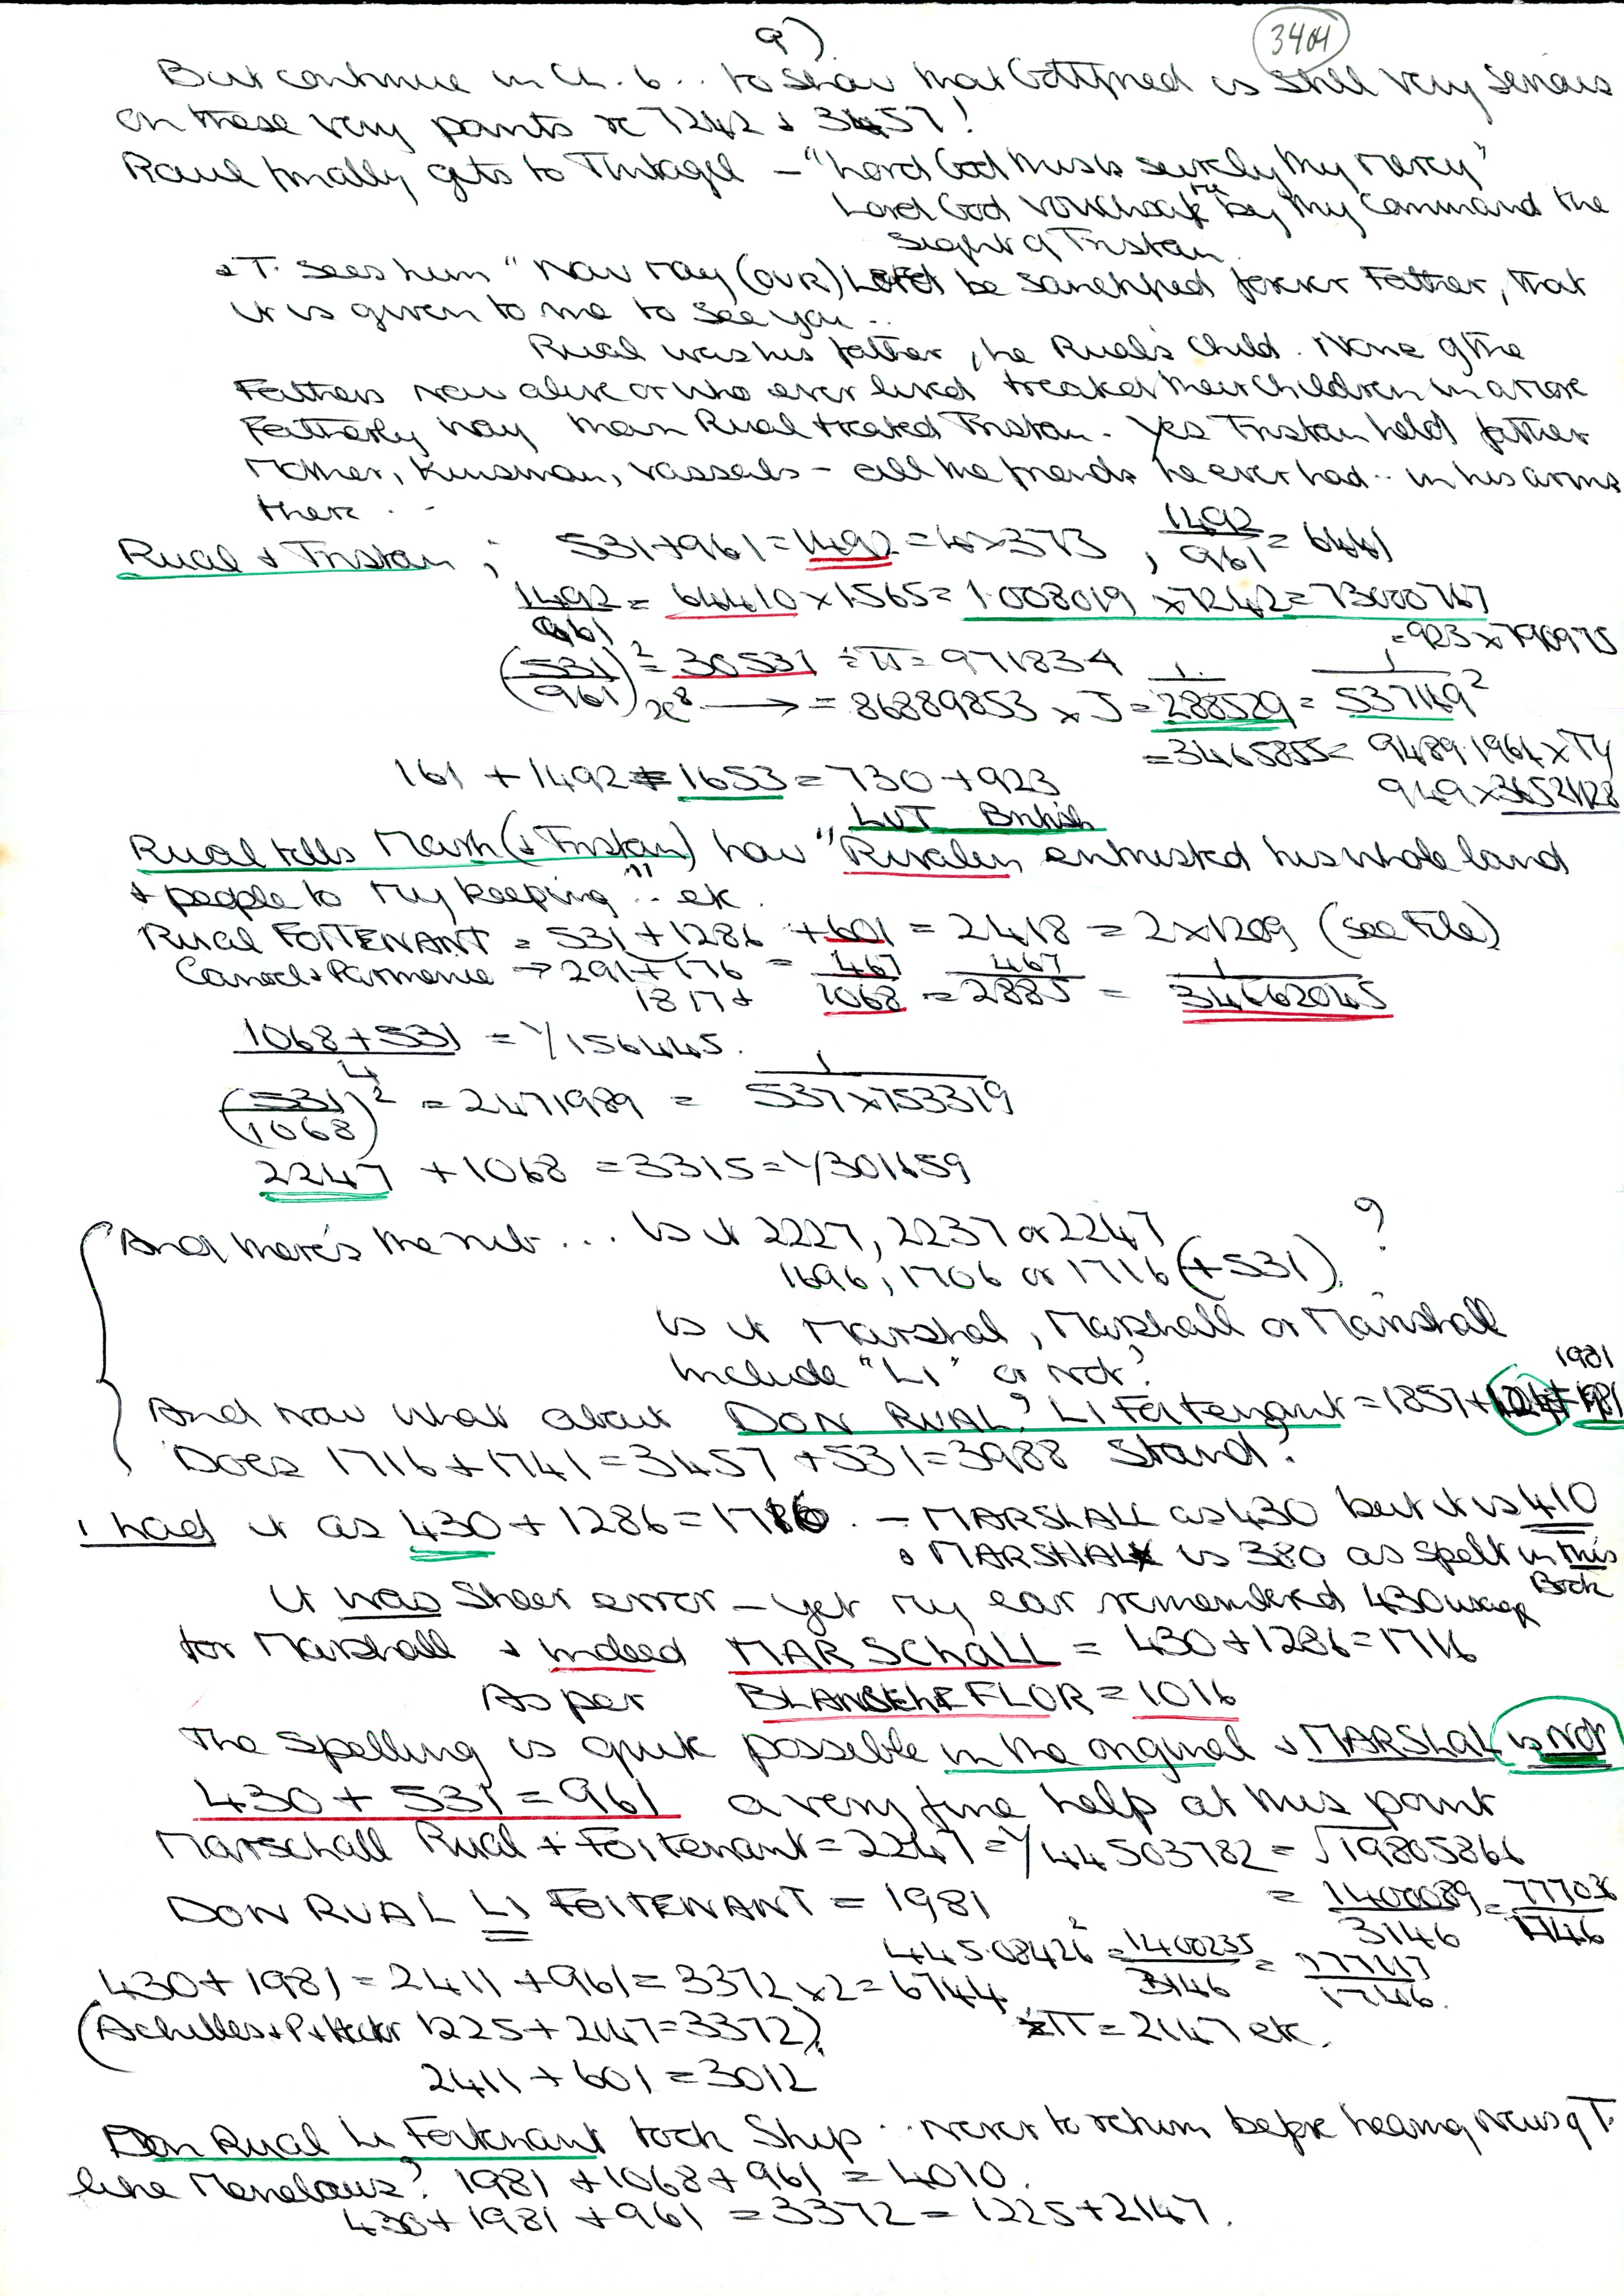 9)
3404
But continue in Ch. 6 .. to show that Gottfried is still very serious
on these very points re 7242 + 3457!
Raul finally gets to Tintagel – "Lord God this is surely thy mercy"
Lord God vouchsafe me by thy command the
sight of Tristan
+ T. sees him "Now may (OUR) Lord be sanctified forever Father, that
it is given to me to see you ..
Rual was his father, he Rual's child. None of the
Fathers now alive or who ever lived treated their children in a more
Fatherly way than Rual treated Tristan. Yes Tristan held father
Mother, Kinsman, vassals – all the friends he ever had .. in his arms
there . -
Rual + Tristan ; 531+961=1492=4×373 , 1492/961 = 6441
1492/961 = 64410 ×1565= 1.008019 ×7242=73000767
=923×790975
(531/961)² = 30531 ÷π= 971834
x⁸ → = 86889853 × 5 = 1/288529 = 1/537149²
=3465855= 9489.1964×TY
949×3652428
161 + 1492 = 1653 = 730 +923
LUT British
Rual tells Mark (+ Tristan) how "Rivalen entrusted his whole land
+ people to my keeping" .. etc.
Rual FOITENANT = 531+1286 +601 = 2418 = 2×1209 (see File)
Canoel + Parmenie → 291+176 = 467 467
1817+ 1068 = 2885 = 1/34662045
1068+531/4 = 1/156445.
(531/1068)² = 2471989 = 1/537×753319
2247 +1068 =3315=1/301659
And there's the rub ... Is it 2227, 2237 or 2247 ?
1696, 1706 or 1716 (+531)
is it Marshal, Marshall or Marschall
include "LI" or not?
1981
And now what about DON RUAL LI Foitenant? =1857+124=1981
Does 1716+1741=3457 +531=3988 Stand?
I had it as 430+1286=1716. – MARSHALL as 430 but it is 410
+ MARSHAL is 380 as spelt in this
Book
It was sheer error – yet my ear remembered 430 usage
for Marshall + indeed MARSCHALL = 430+1286=1716
As per BLANSCHEFLOR = 1016
The spelling is quite possible in the original + MARSHAL is not
430 + 531 = 961 a very fine help at this point
Marschall Rual + Foitenant = 2247 =1/44503782 = √19805866
DON RUAL LI FOITENANT = 1981
= 1400089/3146 = 777036/1746
445.08426² = 1400235/3146 = 777117/1746.
430+1981 = 2411 +961= 3372 ×2=6744 ÷π = 2147 etc.
(Achilles + P + Hector 1225+2147=3372)
2411+601=3012
Don Rual Li Foitenant took Ship .. never to return before hearing news of T.
like Menelaus? 1981 +1068+961 = 4010.
430+1981 +961 =3372 = 1225+2147.